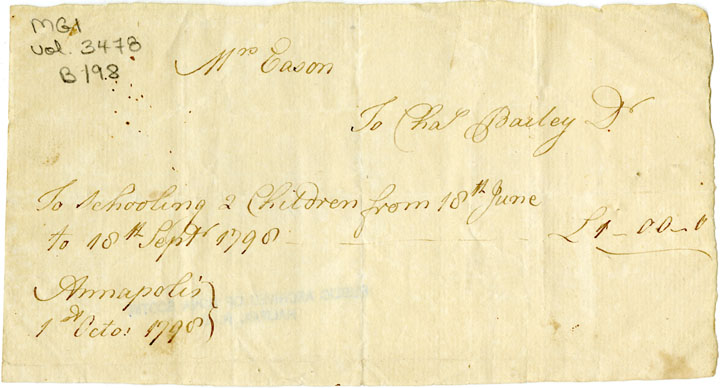 MG1
Vol. 3478
B198
Mrs Eason
To Chas Bailey Dr
To Schooling 2 Children from 18th June
to 18th Septr 1798 £1-00-0
Annapolis
1st Octor 1798